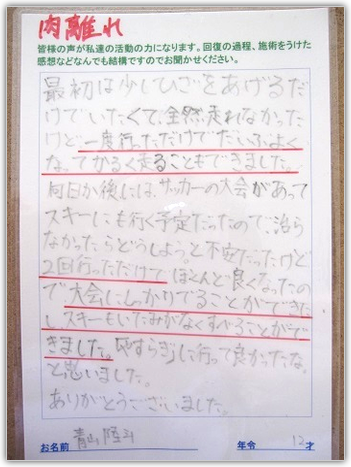 肉離れ
皆様の声が私達の活動の力になります。回復の過程、施術をうけた
感想などなんでも結構ですのでお聞かせください。
最初は少しひざをあげるだ
けでいたくて、全然走れなかった
けど一度行っただけでだいぶよく
な。てかるく走ることもできました。
何日か後には、サッカーの大会があって
スキーにも行く予定だったので、治ら
なかったらどうしよう。と不安だったけど
2回行っただけでほとんど良くなったの
で大会にしっかりでることができた
しスキーもいたみがなくすべることがで
きました。 に行って良かったな。
と思いました。
ありがとうございました。
お名前 青山
年令 12才